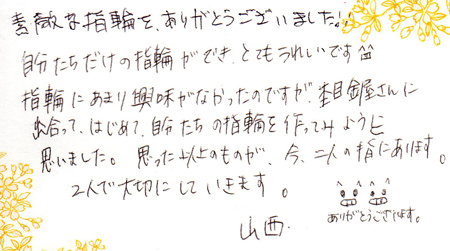 素敵な指輪を、ありがとうございました!!
自分たちだけの指輪ができ、とてもうれしいです
指輪にあまり興味がなかったのですが、杢目金屋さんに
出会って、はじめて、自分たちの指輪を作ってみようと
思いました。思った以上のものが、今、二人の指にあります。
2人で大切にしていきます。
山西.
ありがとうございます。